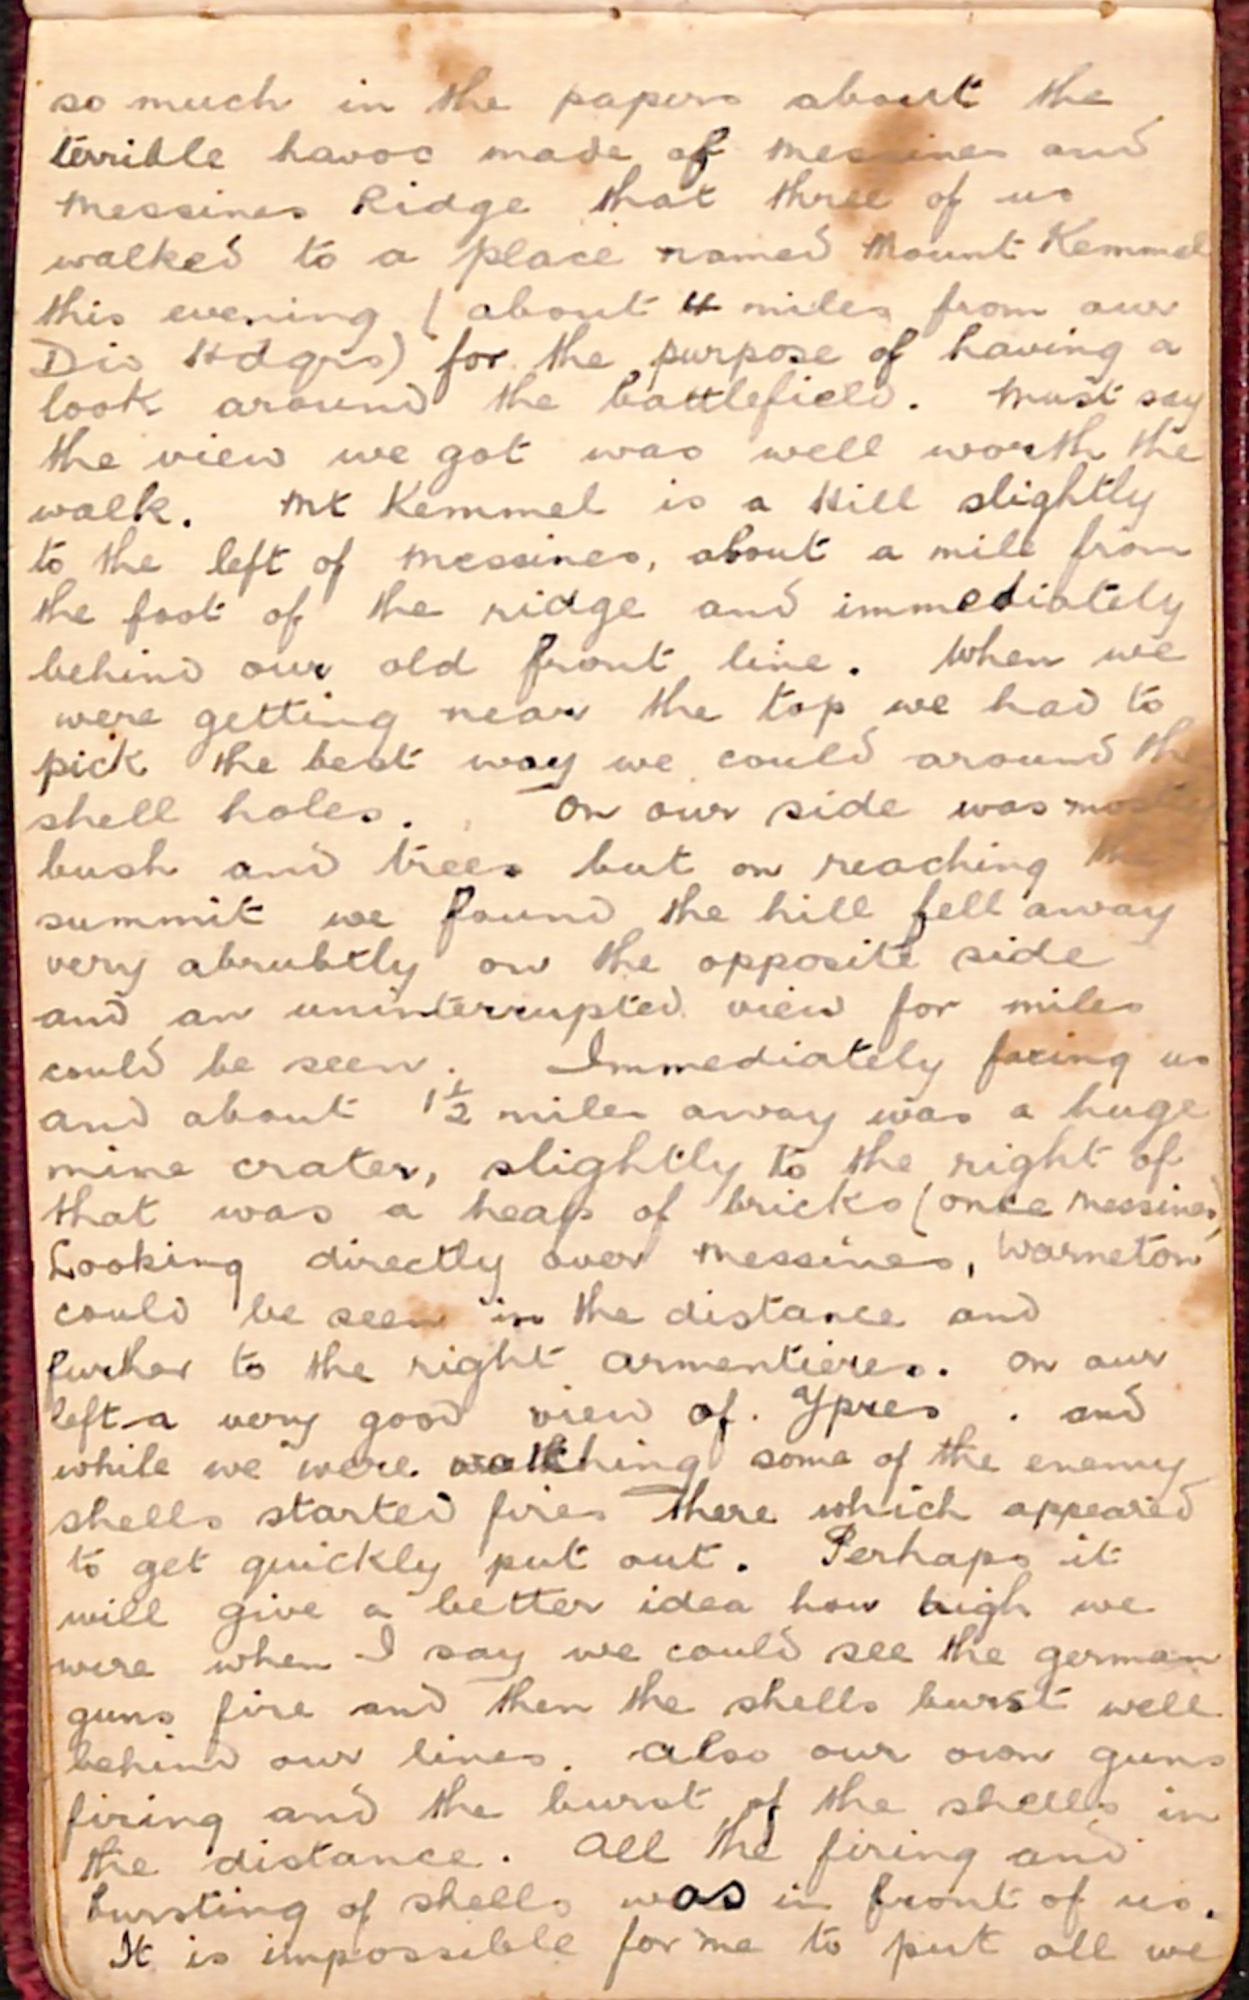 so much in the papers about the
terrible havoc made of Messines and
Messines Ridge that three of us
walked to a place named Mount Kemmel
this evening (about 4 miles from our
Div Hdqrs) for the purpose of having a
look around the battlefield. Must say
the view we got was well worth the
walk. Mt Kemmel is a Hill slightly
to the left of Messines, about a mile from
the foot of the ridge and immediately
behind our old front line. When we
were getting near the top we had to
pick the best way we could around the
shell holes. On our side was mostly
bush and trees but on reaching the
summit we found the hill fell away
very abrubtly on the opposite side
and an uninterrupted view for miles
could be seen. Immediately facing us
and about 1½ miles away was a huge
mine crater, slightly to the right of
that was a heap of bricks (once Messines)
Looking directly over Messines, Warneton
could be seen in the distance and
further to the right Armentieres. On our
left a very good view of. Ypres. and
while we were watching some of the enemy
shells started fires there which appeared
to get quickly put out. Perhaps it
will give a better idea how high we
were when I say we could see the german
guns fire and then the shells burst well
behind our lines. Also our own guns
firing and the burst of the shells in
the distance. All the firing and
bursting of shells was in front of us.
It is impossible for me to put all we